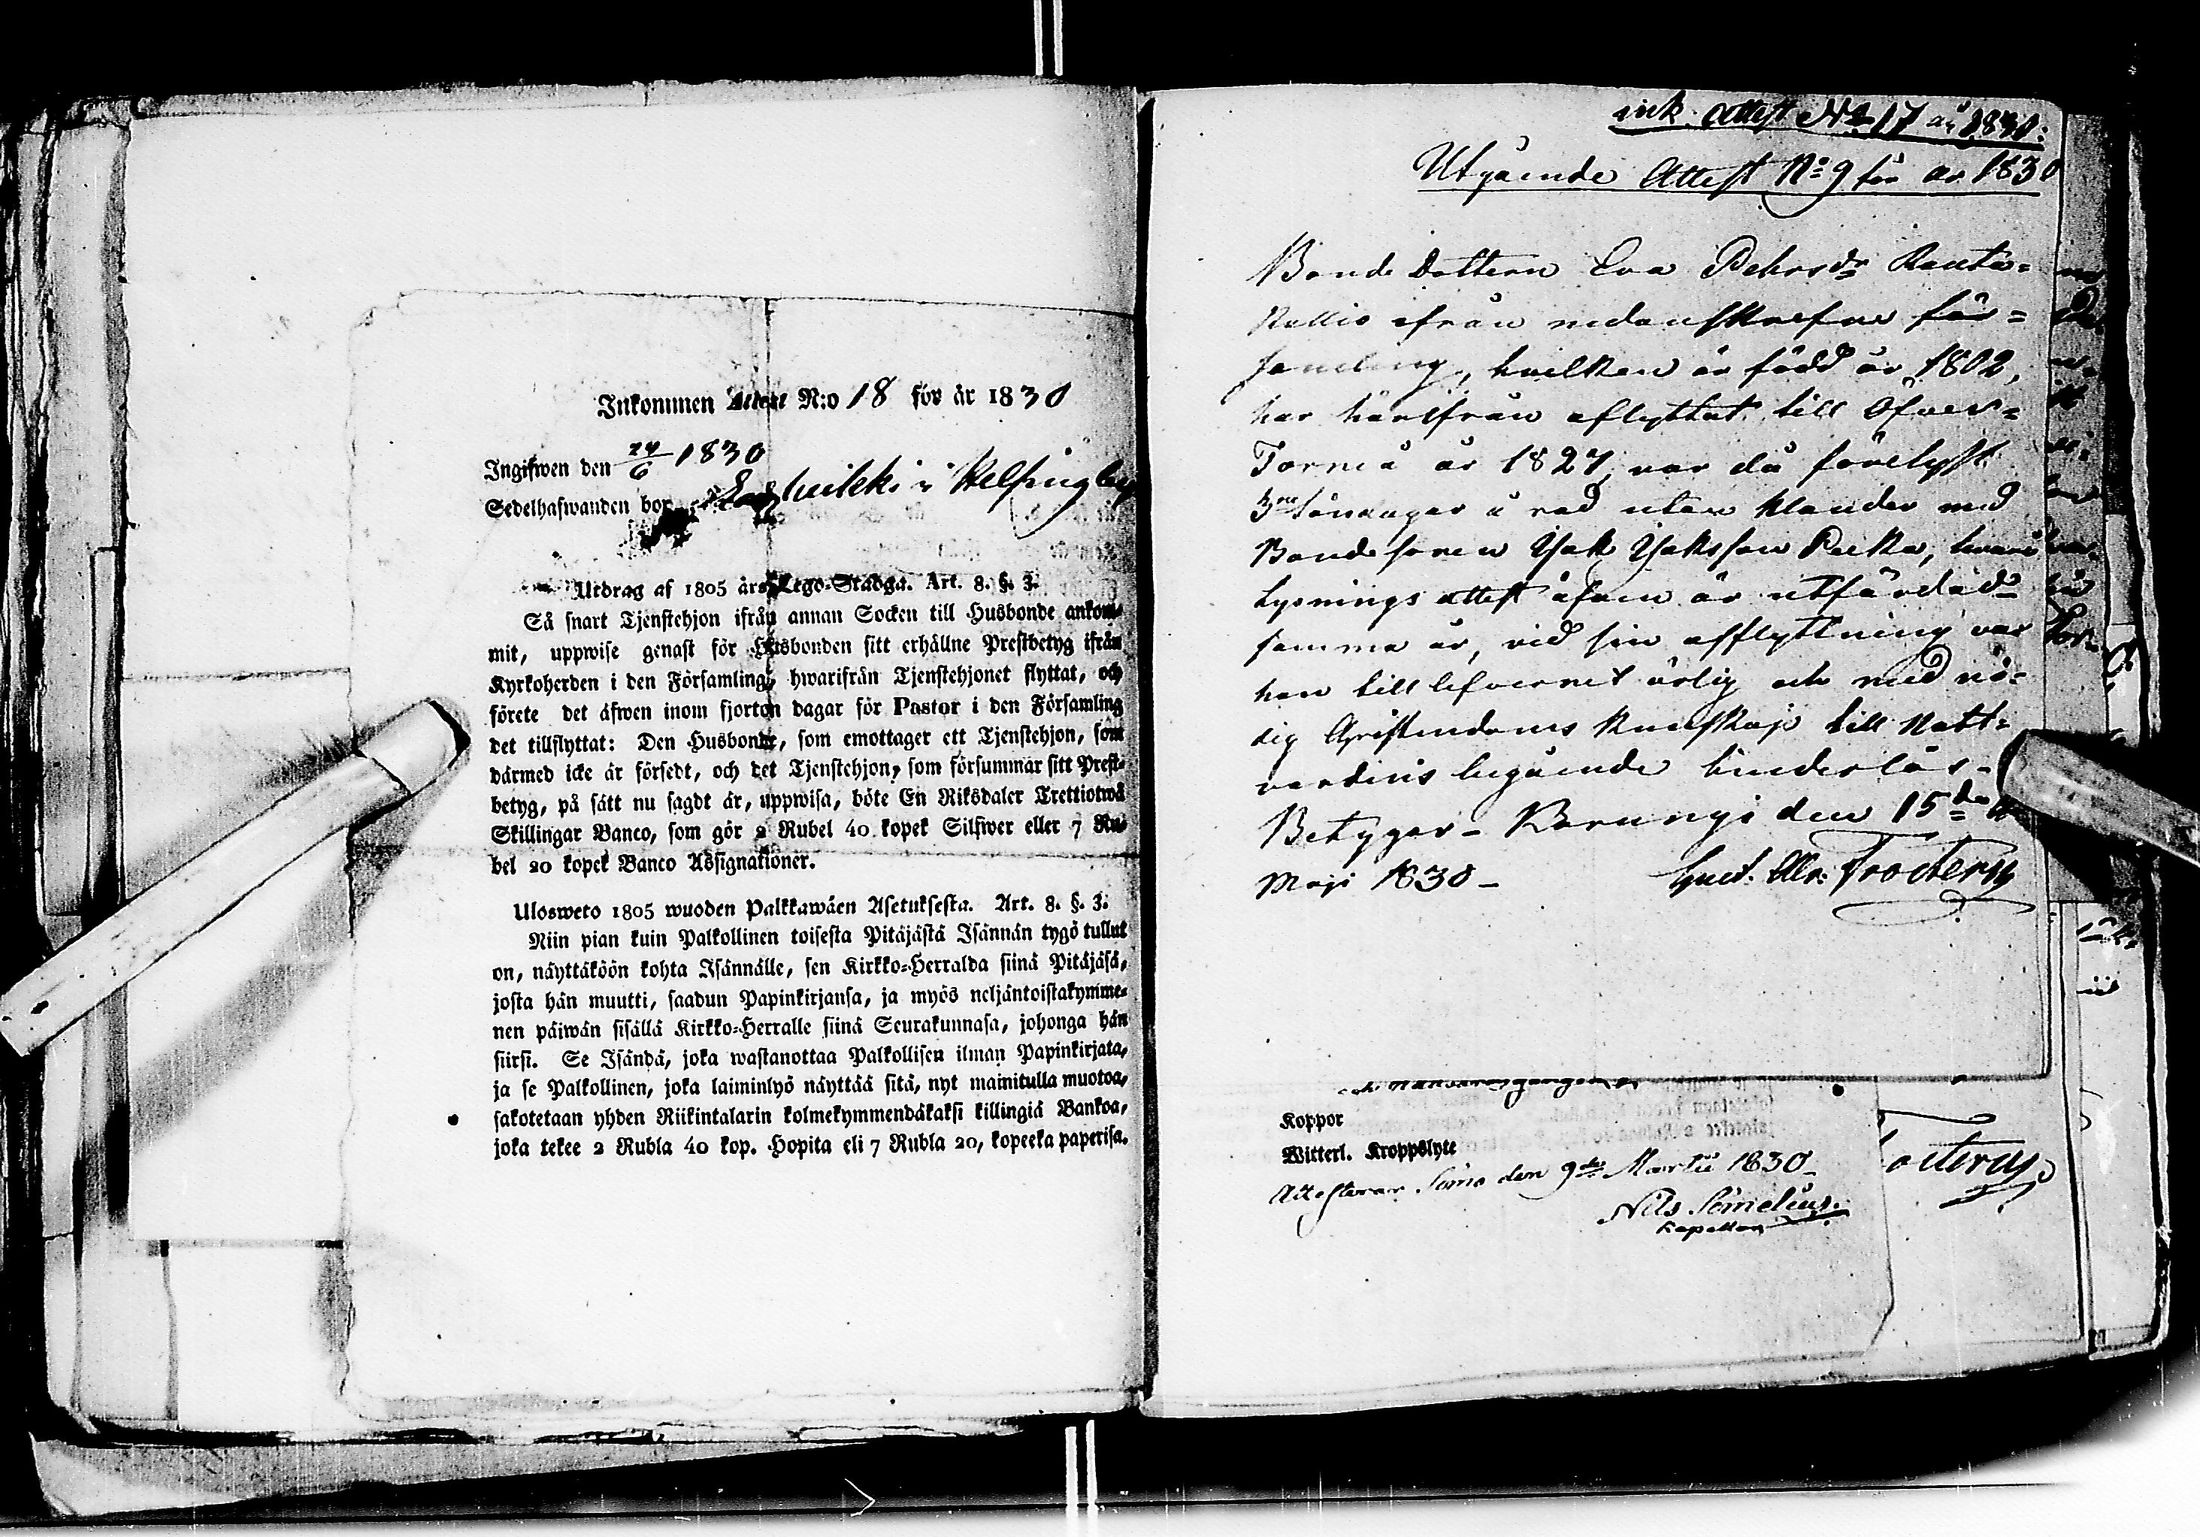 Inkommen Attest N:o 18 för år 1830
Ingifwen den 24/6 1830
Sedelhafwanden bor i Helsingby
Utdrag af 1805 års Lego-Stadga. Art. 8. §. 3.
Så snart Tjenstehjon ifrån annan Socken till Husbonde ankom-
mit, uppwise genast för Husbonden sitt erhållne Prestbetyg ifrån
Kyrkoherden i den Församling, hwarifrån Tjenstehjonet flyttat, och
förete det äfwen inom fjorton dagar för Pastor i den Församling
det tillflyttat: Den Husbonde, som emottager ett Tjenstehjon, som
därmed icke är försedt, och det Tjenstehjon, som försummar sitt Prest-
betyg, på sätt nu sagdt är, uppwisa, böte En Riksdaler Trettiotwå
Skillingar Banco, som gör 2 Rubel 40 kopek Silfwer eller 7 Ru-
bel 20 kopek Banco Assignationer.
Ulosweto 1805 wuoden Palkkawäen Asetuksesta. Art. 8. §. 3.
Niin pian kuin Palkollinen toisesta Pitäjästä Isännän tygö tullut
on, näyttäköön kohta Isännälle, sen Kirkko-Herralda siinä Pitäjäsä,
josta hän muutti, saadun Papinkirjansa, ja myös neljäntoistakymme-
nen päiwän sisällä Kirkko-Herralle siinä Seurakunnasa, johonga hän
siirsi. Se Isändä, joka wastanottaa Palkollisen ilman Papinkirjata,
ja se Palkollinen, joka laiminlyö näyttää sitä, nyt mainitulla muotoa,
sakotetaan yhden Riikintalarin kolmekymmendäkaksi killingiä Bankoa,
joka tekee 2 Rubla 40 kop. Hopita eli 7 Rubla 20, kopeeka paperisa.
ink. Attest No 17 år 1830.
Utgående Attest No 9 för år 1830
Bonde Dottern Eva Pehrsdr Rauta-
Kallio ifrån nedanskrefne för-
samling, hvilken är född år 1802,
har härifrån aflyttat till Öfver-
Torneå år 1827, var då förelyst
3ne Söndagar å rad utan klander med
Bondesonen Isak Isaksson Pecka, hvarå
Lysnings attest äfven är utfärdad
samma år, vid sin afflyttning var
hon till lefvernet ärlig och med nö-
dig Christendoms kunskap till Natt-
vardens begående hinderlös -
Betygar - Karungi den 15de
Maji 1830 -
Frosterus
Koppor
Witterl. Kroppslyte
Attesterar Simo den 9de Martii 1830
Nils Simelius.
Kapellan